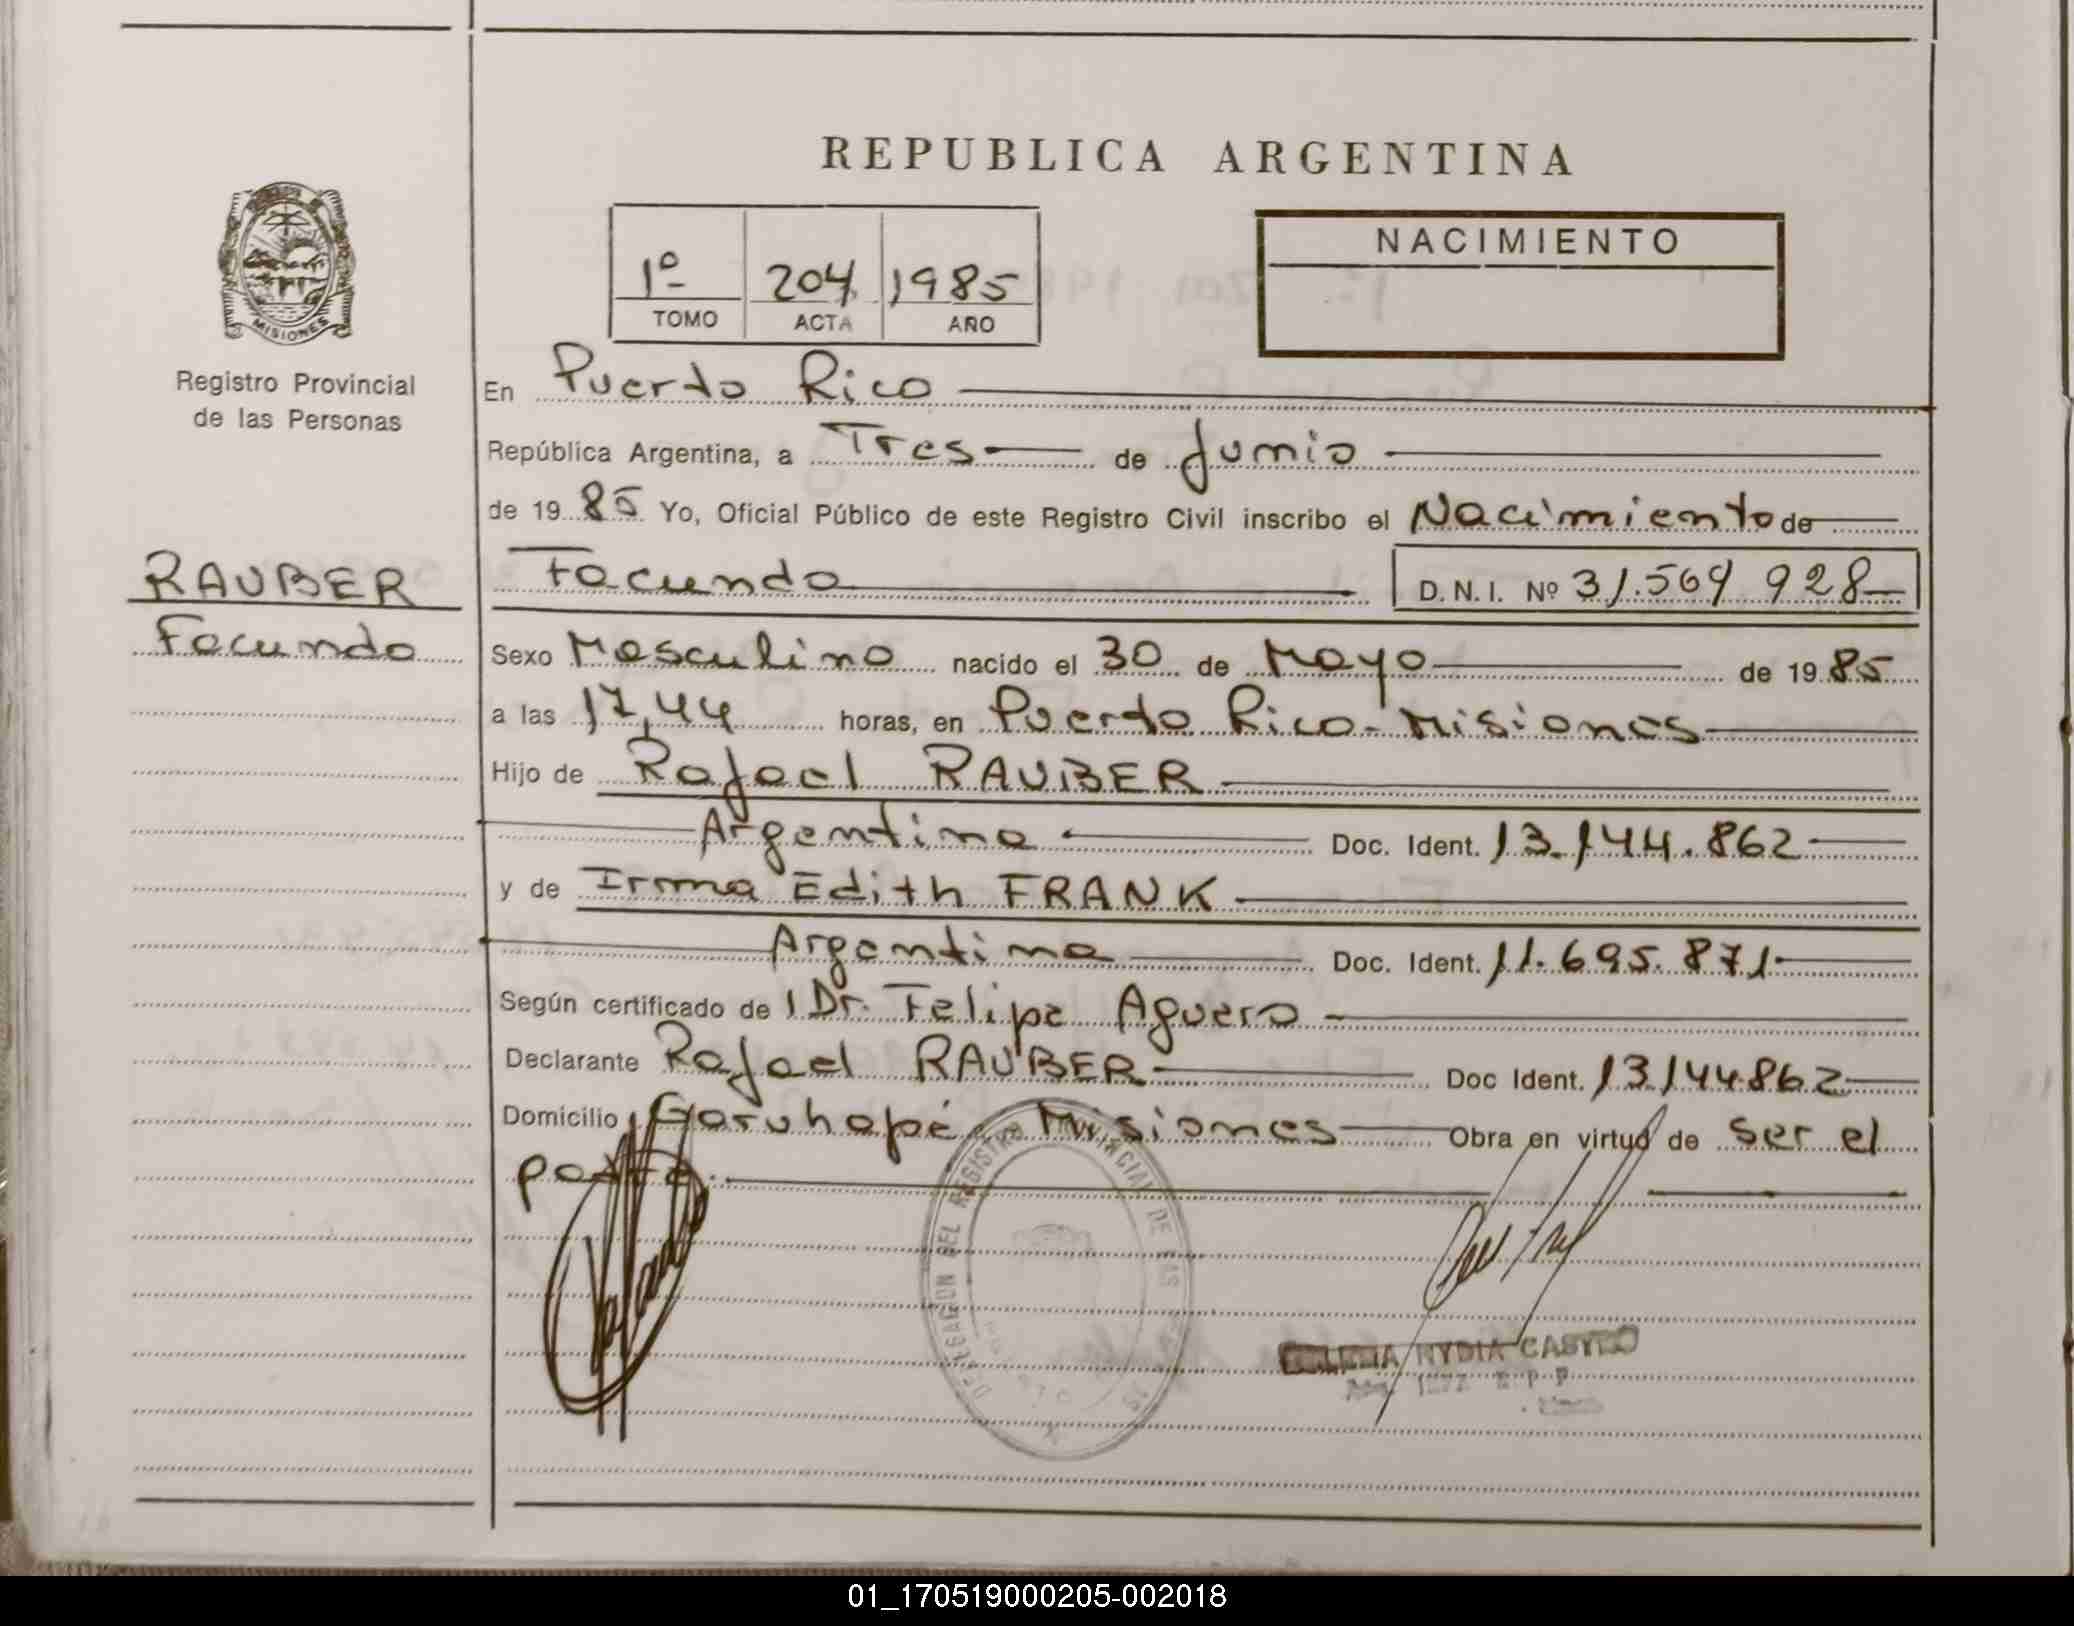 REPUBLICA ARGENTINA
MISIONES
Registro Provincial
de las Personas
1º 204 1985
TOMO ACTA AÑO
NACIMIENTO
En Puerto Rico
República Argentina, a Tres de Junio
de 1985 Yo, Oficial Público de este Registro Civil inscribo el Nacimiento de
RAUBER
Facundo
Facundo D.N.I. Nº 31.569 928
Sexo Masculino nacido el 30 de Mayo de 1985
a las 17,44 horas, en Puerto Rico-Misiones
Hijo de Rafael RAUBER
Argentino Doc. Ident. 13.144.862
y de Irma Edith FRANK
Argentina Doc. Ident. 11.695.871
Según certificado de 1 Dr. Felipe Aguero
Declarante Rafael RAUBER Doc Ident. 13144862
Domicilio Garuhapé - Misiones Obra en virtud de ser el
padre.
DELEGACION DEL REGISTRO PROVINCIAL DE LAS
NYDIA CASTRO
01_170519000205-002018